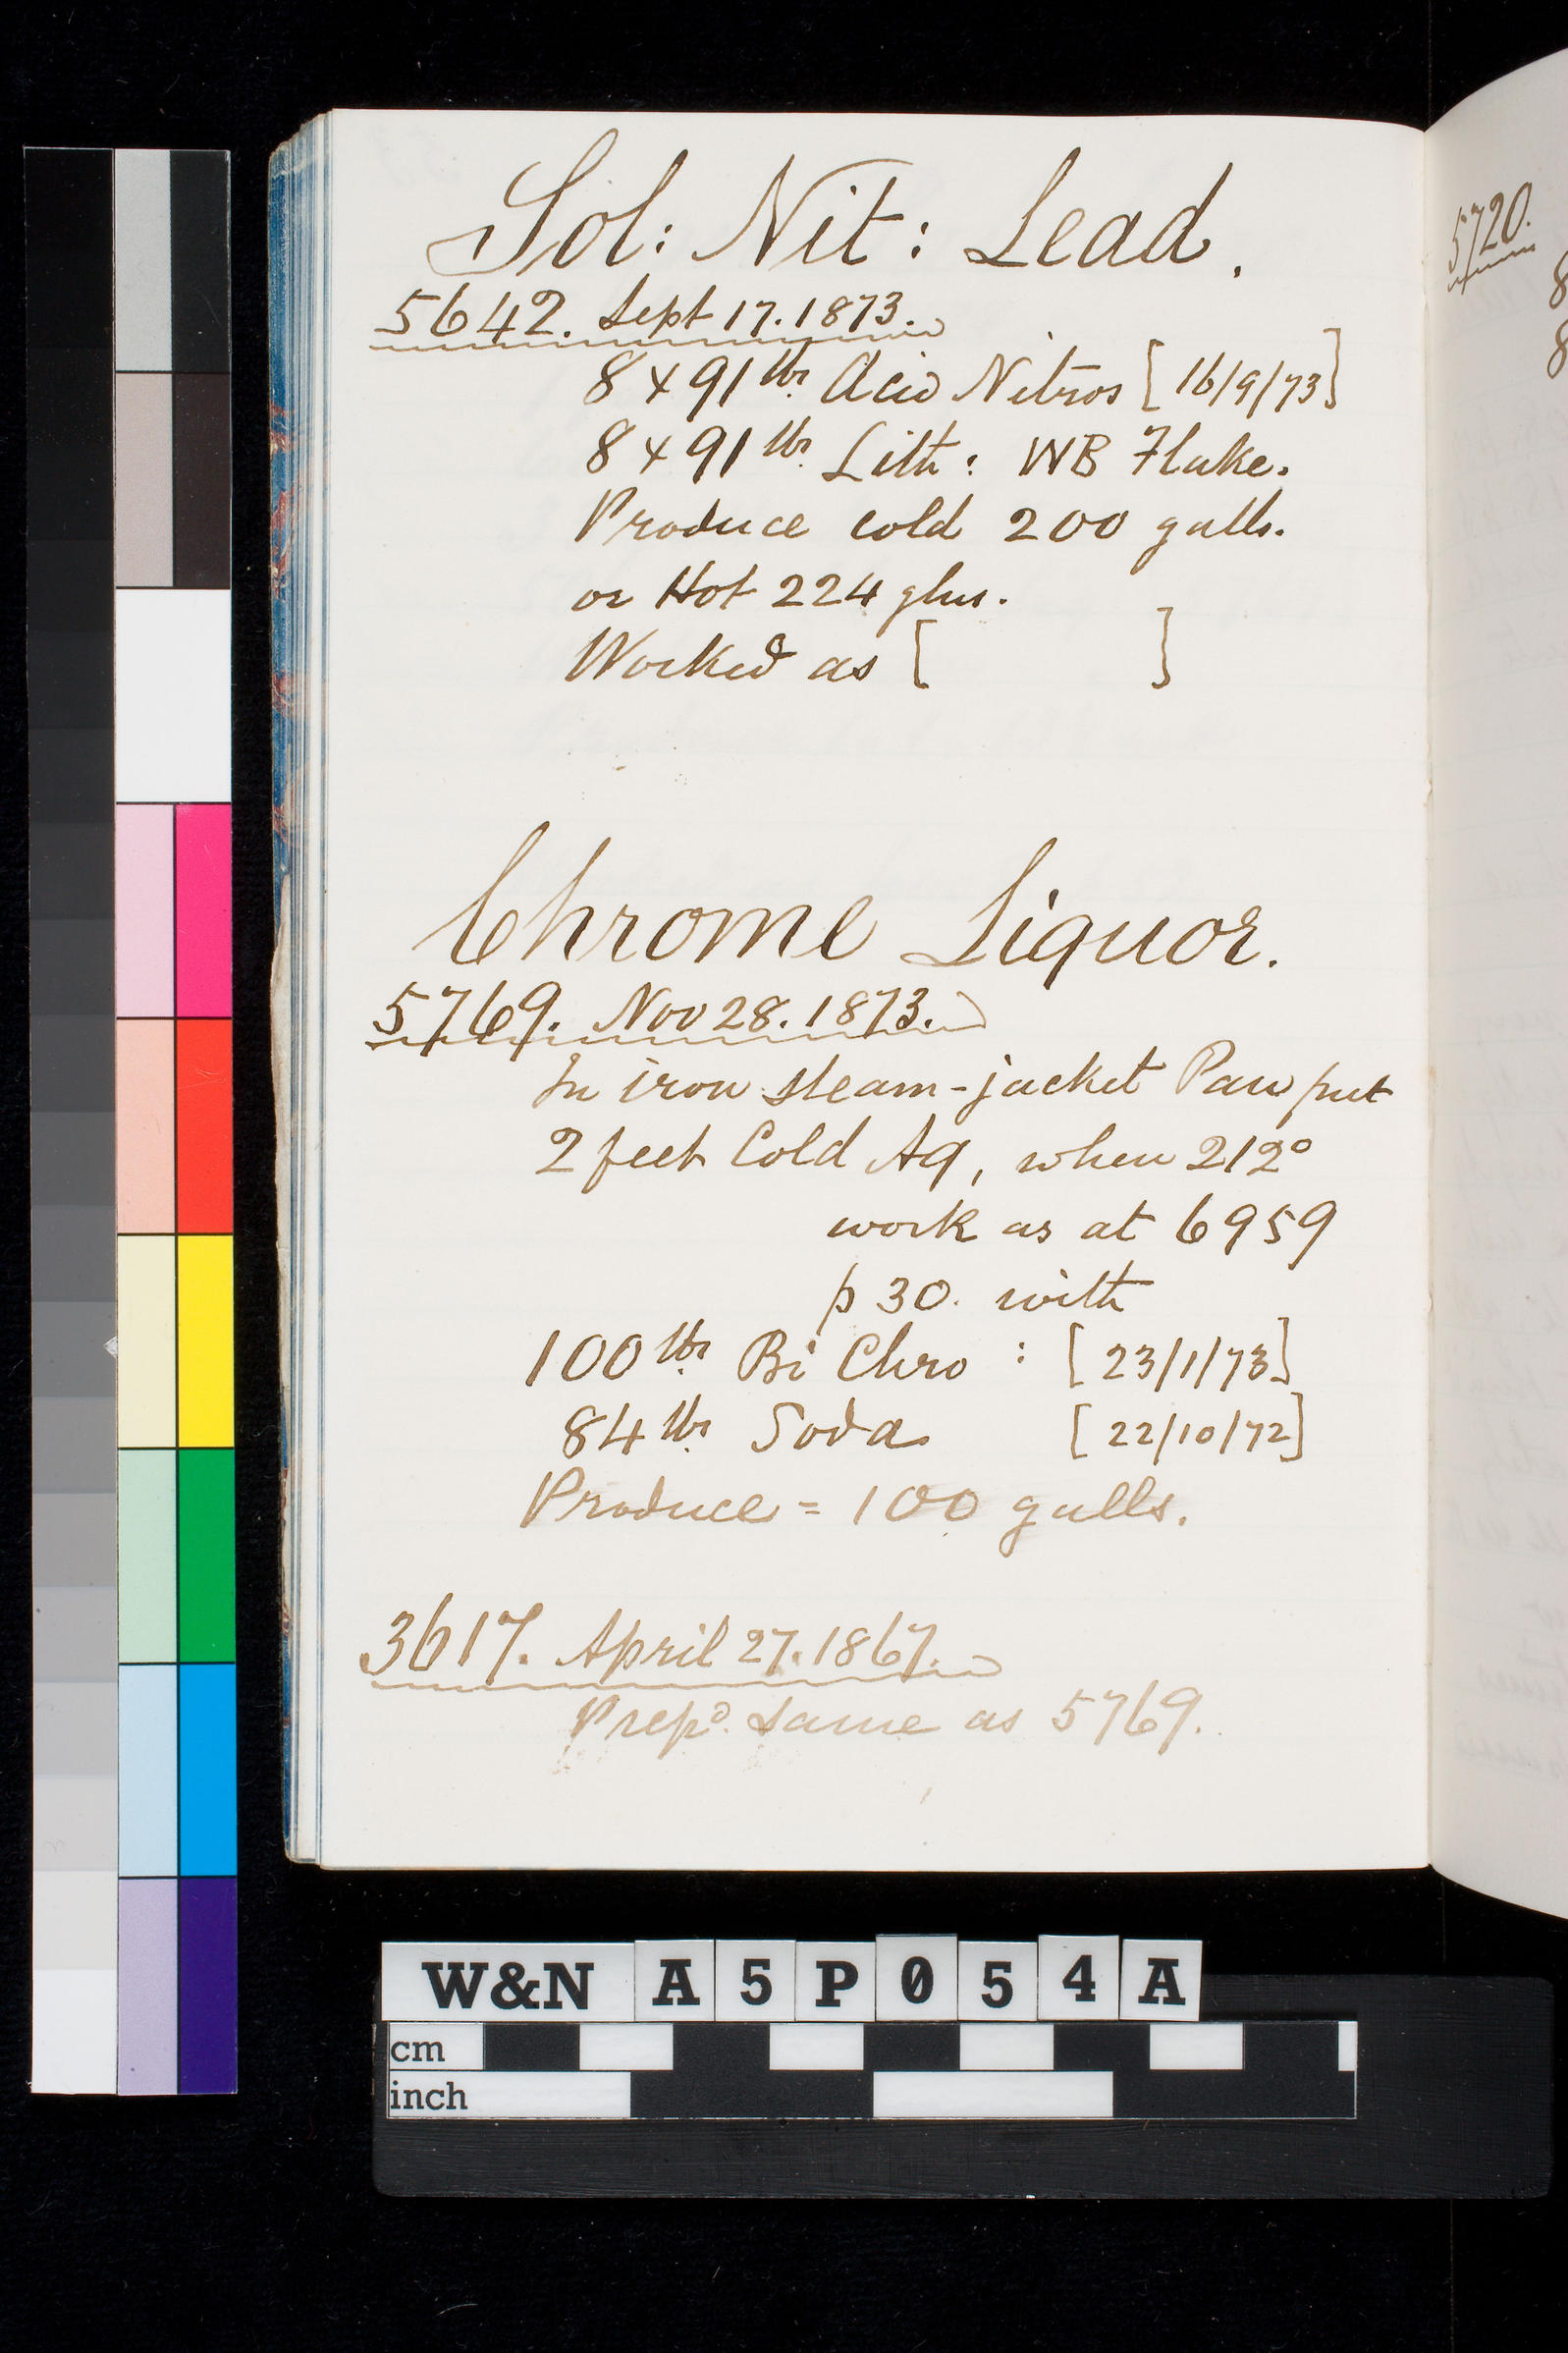 Sol: Nit: Lead.
5642. Sept 17. 1873.
8 x 91 lbs. Acid Nitros [16/9/73]
8 x 91 lbs. Lith: WB Flake.
Produce cold 200 galls.
or Hot 224 glns.
Worked as [ ]
Chrome Liquor.
5769. Nov 28. 1873.
In iron steam-jacket Pan put
2 feet Cold Aq, when 212°
work as at 6959
p 30. with
100 lbs Bi Chro : [23/1/73]
84 lbs Soda [22/10/72]
Produce = 100 galls.
3617. April 27. 1867.
Prepd. same as 5769.
5720.
8
8
W&N A5P054A
cm
inch